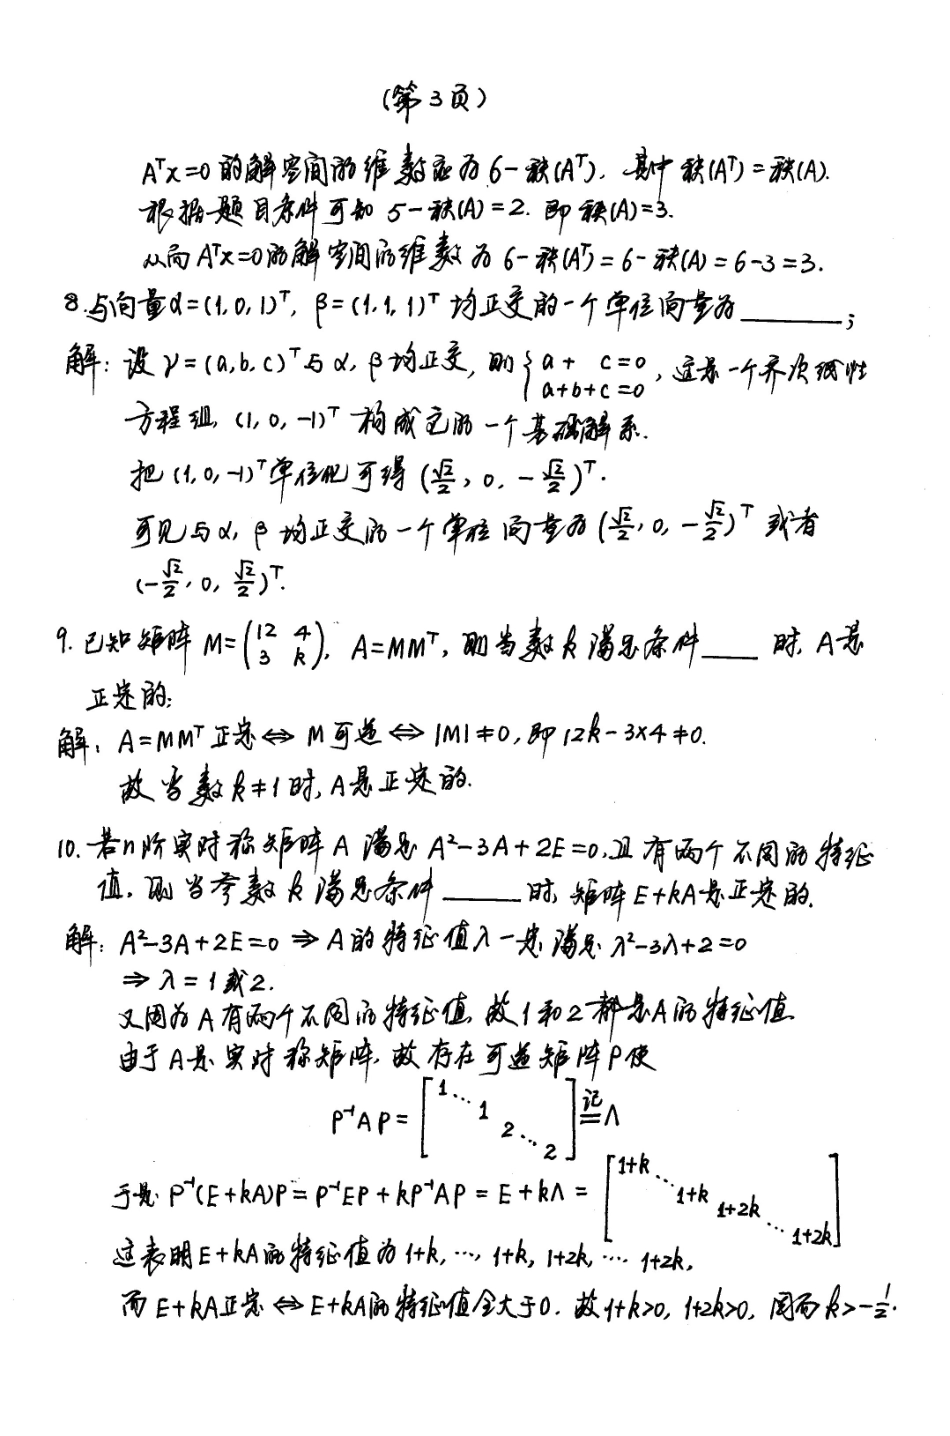 (第3页)
Aᵀx=0的解空间的维数应为6-秩(Aᵀ), 其中秩(Aᵀ)=秩(A).
根据题目条件可知 5-秩(A)=2. 即秩(A)=3.
从而Aᵀx=0的解空间的维数为6-秩(Aᵀ)=6-秩(A)=6-3=3.
8.与向量α=(1,0,1)ᵀ, β=(1,1,1)ᵀ 均正交的一个单位向量为______;
解: 设γ=(a,b,c)ᵀ与α,β均正交, 则{a+ c=0, a+b+c=0, 这是一个齐次线性
方程组, (1,0,-1)ᵀ 构成它的一个基础解系.
把(1,0,-1)ᵀ单位化可得(√2/2, 0, -√2/2)ᵀ.
可见与α,β均正交的一个单位向量为(√2/2, 0, -√2/2)ᵀ 或者
(-√2/2, 0, √2/2)ᵀ.
9.已知矩阵 M=(12 4; 3 k), A=MMᵀ, 则当数k满足条件____时, A是
正定的;
解: A=MMᵀ正定⇔M可逆⇔|M|≠0, 即12k-3×4≠0.
故当数k≠1时, A是正定的.
10.若n阶实对称矩阵A满足A²-3A+2E=0, 且有两个不同的特征
值, 则当参数k满足条件______时, 矩阵E+kA是正定的.
解: A²-3A+2E=0⇒A的特征值λ一定满足λ²-3λ+2=0
⇒λ=1或2.
又因为A有两个不同的特征值, 故1和2都是A的特征值.
由于A是实对称矩阵, 故存在可逆矩阵P使
P⁻¹AP=[1 ⋱ 1 2 ⋱ 2] 记= Λ
于是 P⁻¹(E+kA)P=P⁻¹EP+kP⁻¹AP=E+kΛ=[1+k ⋱ 1+k 1+2k ⋱ 1+2k]
这表明E+kA的特征值为1+k, …, 1+k, 1+2k, … 1+2k,
而E+kA正定⇔E+kA的特征值全大于0. 故1+k>0, 1+2k>0, 因而k>-1/2.